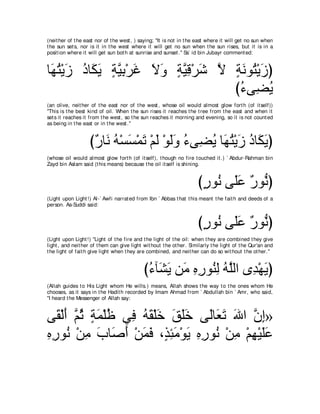 (neither of the east nor of the west, ) saying; "It is not in the east where it will get no sun when
the sun sets, nor is it in the west where it will get no sun when the sun rises, but it is in a
position where it will get sun both at sunrise and sunset.'' Sa`id bin Jubayr commented:
﴿زَيْتُونَةٍ لاَّ شَرْقِيَّةٍ وَلاَ غَرْبِيَّةٍ يَكَادُ زَيْتُهَا
يُضِىءُ﴾
(an olive, neither of the east nor of the west, whose oil would almost glow forth (of itself))
"This is the best kind of oil. When the sun rises it reaches the tree from the east and when it
sets it reaches it from the west, so the sun reaches it morning and evening, so it is not counted
as being in the east or in the west.''
﴿يَكَادُ زَيْتُهَا يُضِىءُ وَلَوْ لَمْ تَمْسَسْهُ نَارٌ﴾
(whose oil would almost glow forth (of itself), though no fire touched it.) `Abdur-Rahman bin
Zayd bin Aslam said (this means) because the oil itself is shining.
﴿نُّورٌ عَلَى نُورٍ﴾
(Light upon Light!) Al-`Awfi narrated from Ibn `Abbas that this meant the faith and deeds of a
person. As-Suddi said:
﴿نُّورٌ عَلَى نُورٍ﴾
(Light upon Light!) "Light of the fire and the light of the oil: when they are combined they give
light, and neither of them can give light without the other. Similarly the light of the Qur'an and
the light of faith give light when they are combined, and neither can do so without the other.''
﴿يَهْدِى اللَّهُ لِنُورِهِ مَن يَشَآءُ﴾
(Allah guides to His Light whom He wills.) means, Allah shows the way to the ones whom He
chooses, as it says in the Hadith recorded by Imam Ahmad from `Abdullah bin `Amr, who said,
"I heard the Messenger of Allah say:
«إِنَّ اللهَ تَعَالَى خَلَقَ خَلْقَهُ فِي ظُلْمَةٍ ثُمَّ أَلْقَى
عَلَيْهِمْ مِنْ نُورِهِ يَوْمَئِذٍ، فَمَنْ أَصَابَ مِنْ نُورِهِ